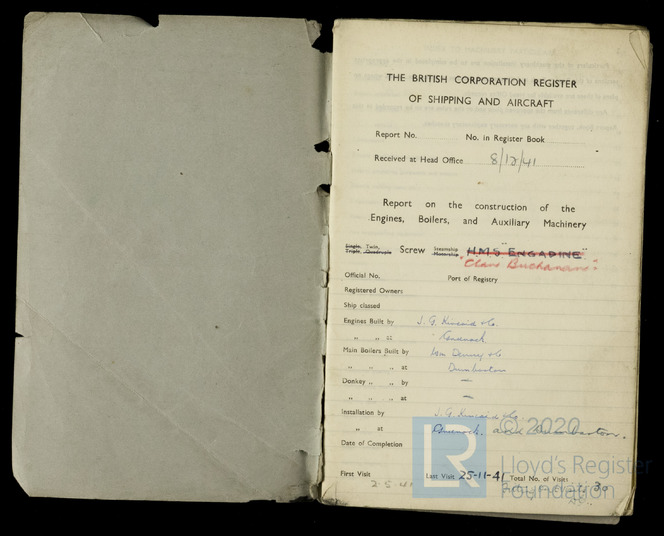 THE BRITISH CORPORATION REGISTER
OF SHIPPING AND AIRCRAFT
Report No. No. in Register Book
Received at Head Office 8/12/41
Report on the construction of the
Engines, Boilers, and Auxiliary Machinery
Single, Twin,
Triple, Quadruple Screw Steamship
Motorship H.M.S "ENGADINE"
"Clan Buchanan".
Official No. Port of Registry
Registered Owners
Ship classed
Engines Built by J. G. Kincaid & Co.
„ „ at Greenock.
Main Boilers Built by Wm Denny & Co
„ „ „ at Dumbarton
Donkey „ „ by —
„ „ „ at —
Installation by J. G. Kincaid & Co.
„ at Greenock. and Dumbarton.
Date of Completion
First Visit 2.5.41 Last Visit 25-11-41 Total No. of Visits
30
LR © 2020
Lloyd's Register
Foundation